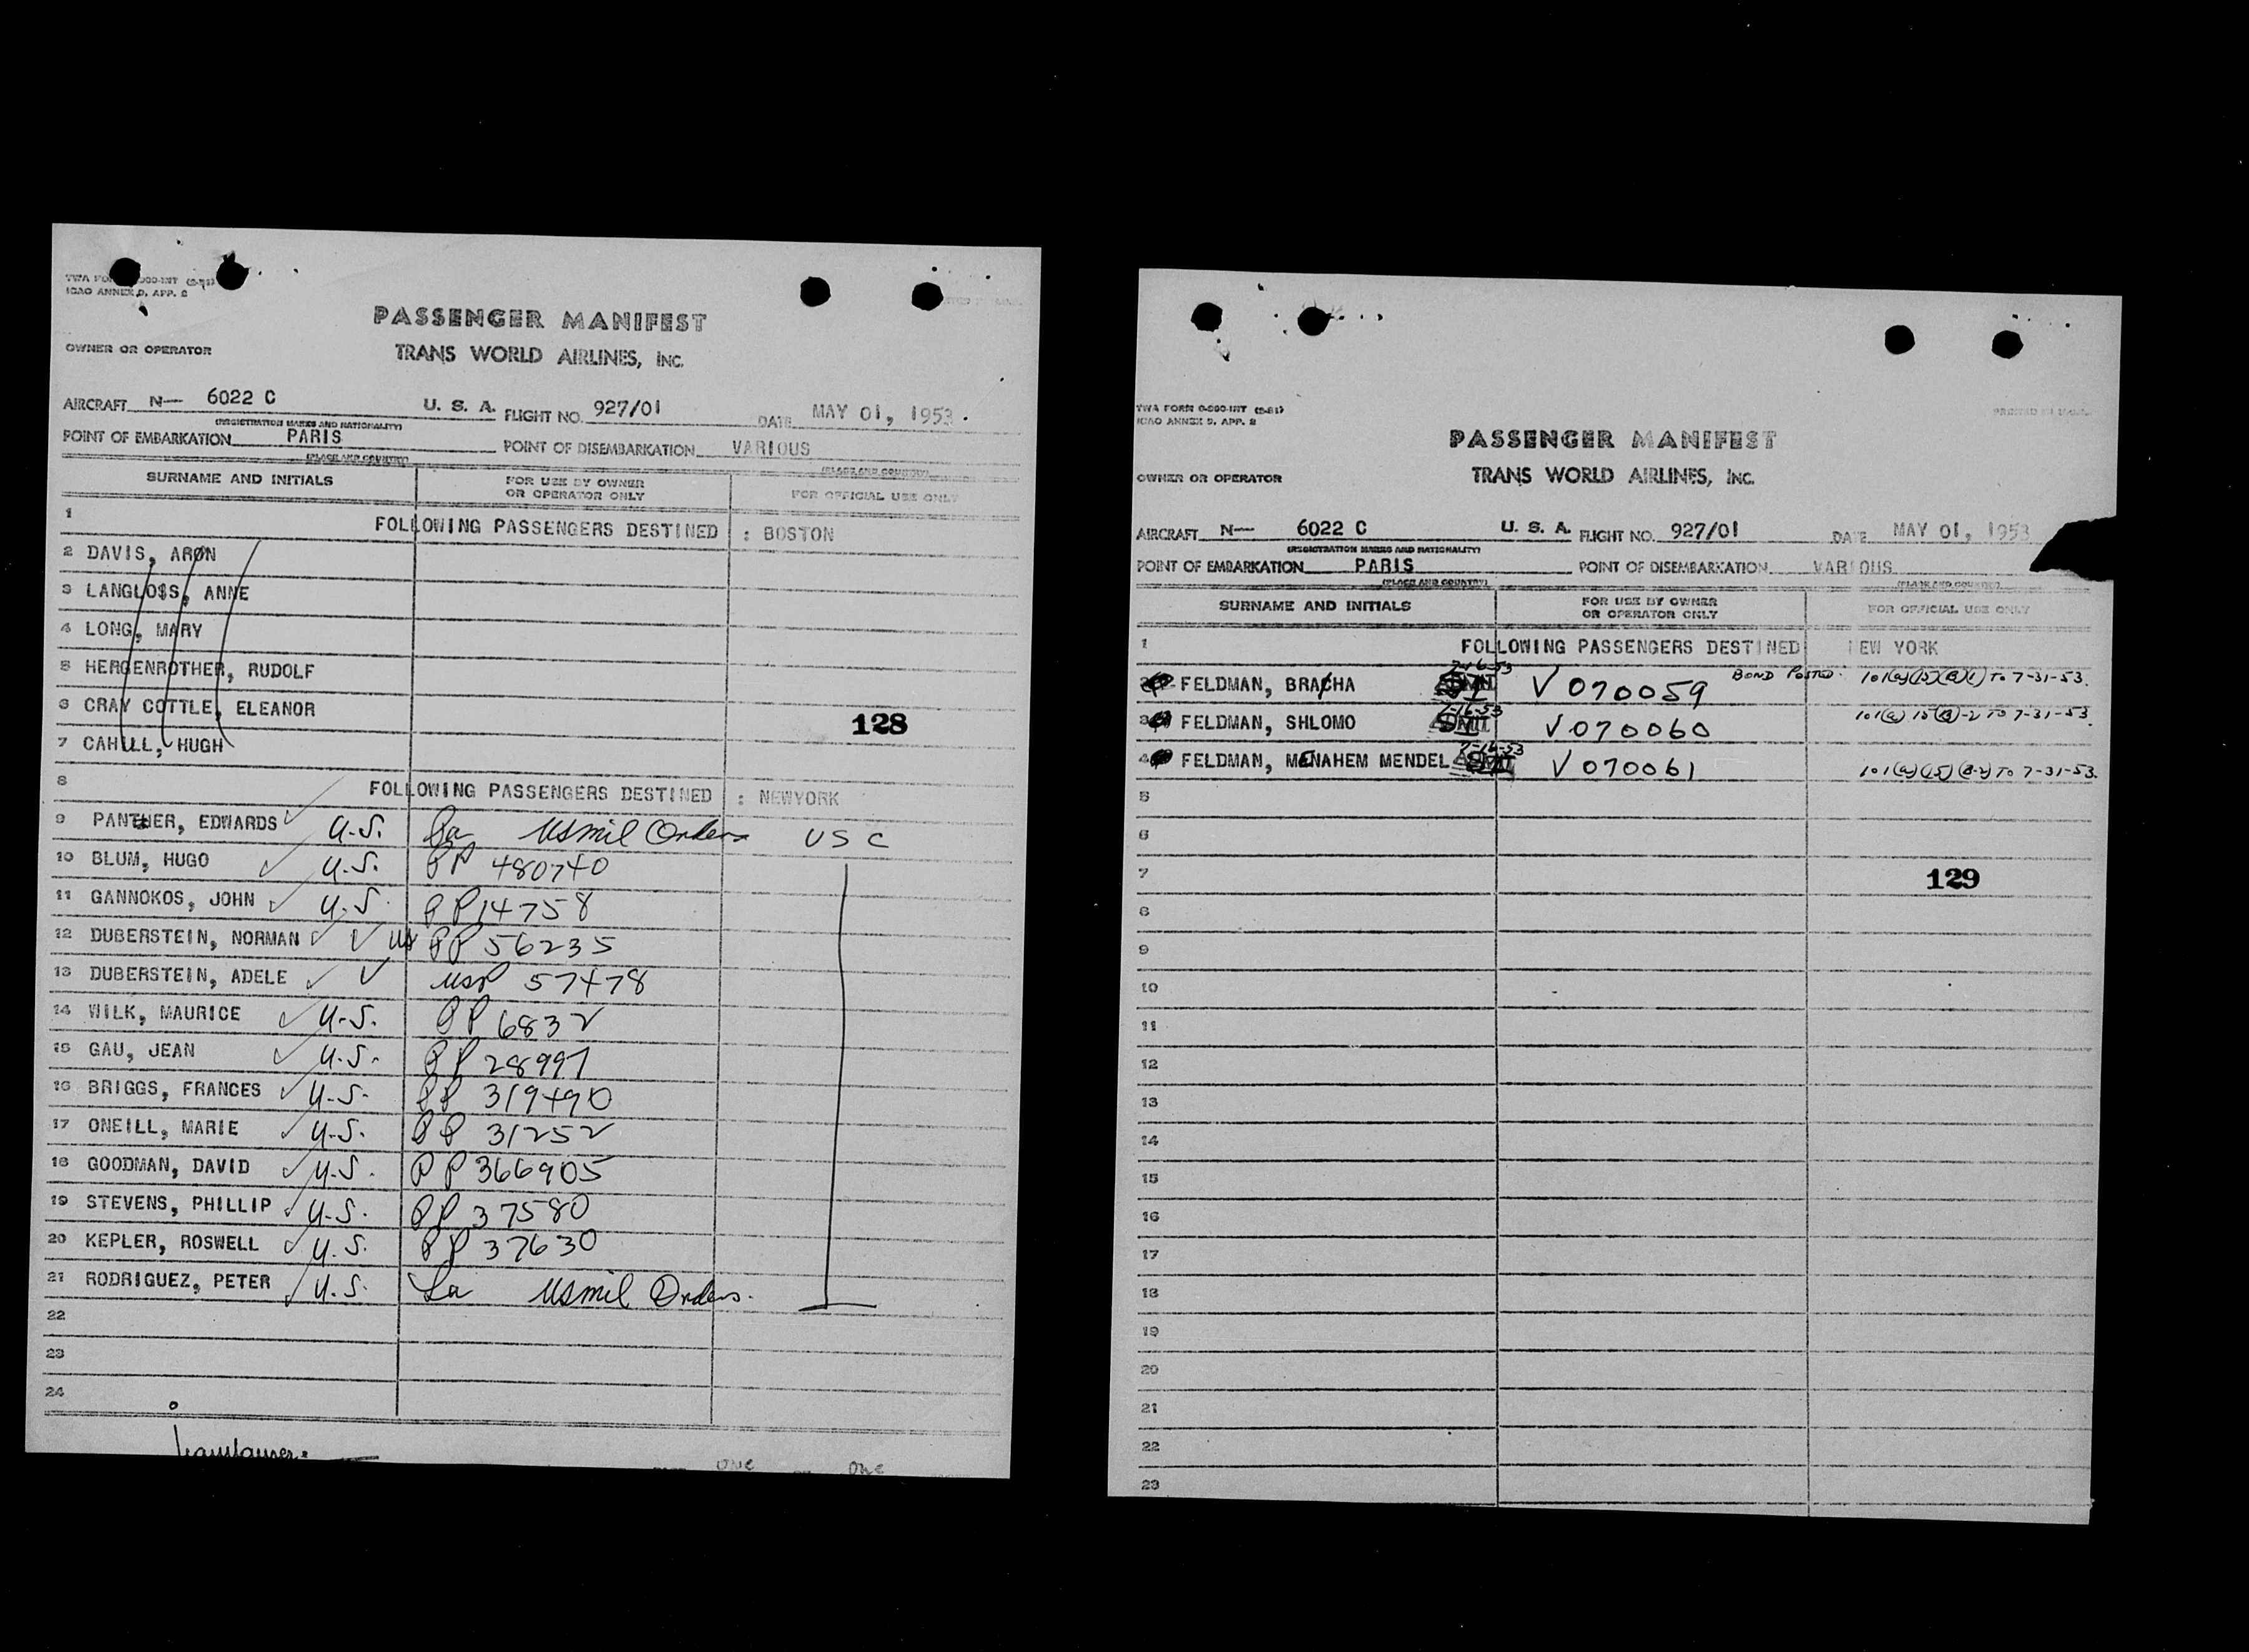 ICAO ANNEX 9, APP. 2
PASSENGER MANIFEST
OWNER OR OPERATOR
TRANS WORLD AIRLINES, INC.
AIRCRAFT N— 6022 C U. S. A. FLIGHT NO. 927/01 DATE MAY 01, 1953.
(REGISTRATION MARKS AND NATIONALITY)
POINT OF EMBARKATION PARIS POINT OF DISEMBARKATION VARIOUS
(PLACE AND COUNTRY) (PLACE AND COUNTRY)
SURNAME AND INITIALS FOR USE BY OWNER OR OPERATOR ONLY FOR OFFICIAL USE ONLY
1 FOLLOWING PASSENGERS DESTINED : BOSTON
2 DAVIS, ARON
3 LANGLOSS, ANNE
4 LONG, MARY
5 HERGENROTHER, RUDOLF
6 CRAY COTTLE, ELEANOR
128
7 CAHILL, HUGH
8 FOLLOWING PASSENGERS DESTINED : NEWYORK
9 PANTHER, EDWARDS U.S. USmil Orders USC
10 BLUM, HUGO U.S. PP 480740
11 GANNOKOS, JOHN U.S. PP 14758
12 DUBERSTEIN, NORMAN US PP 56235
13 DUBERSTEIN, ADELE USP 57478
14 WILK, MAURICE U.S. PP 6832
15 GAU, JEAN U.S. PP 28997
16 BRIGGS, FRANCES U.S. PP 319490
17 ONEILL, MARIE U.S. PP 31252
18 GOODMAN, DAVID U.S. PP 366905
19 STEVENS, PHILLIP U.S. PP 37580
20 KEPLER, ROSWELL U.S. PP 37630
21 RODRIGUEZ, PETER U.S. USmil Orders.
22
23
24
one one
TWA FORM O-090-INT (5-51)
ICAO ANNEX 9, APP. 2
PASSENGER MANIFEST
OWNER OR OPERATOR
TRANS WORLD AIRLINES, INC.
AIRCRAFT N— 6022 C U. S. A. FLIGHT NO. 927/01 DATE MAY 01, 1953
(REGISTRATION MARKS AND NATIONALITY)
POINT OF EMBARKATION PARIS POINT OF DISEMBARKATION VARIOUS
(PLACE AND COUNTRY) (PLACE AND COUNTRY)
SURNAME AND INITIALS FOR USE BY OWNER OR OPERATOR ONLY FOR OFFICIAL USE ONLY
1 FOLLOWING PASSENGERS DESTINED NEW YORK
2 FELDMAN, BRACHA 7-16-53 V 070059 BOND POSTED. 101(a)(15)(B)(1) TO 7-31-53.
3 FELDMAN, SHLOMO 7-16-53 V 070060 101(a) 15 (B)-2 TO 7-31-53.
4 FELDMAN, MENAHEM MENDEL 7-16-53 V 070061 101(a)(15)(B-2) TO 7-31-53.
5
6
7 129
8
9
10
11
12
13
14
15
16
17
18
19
20
21
22
23